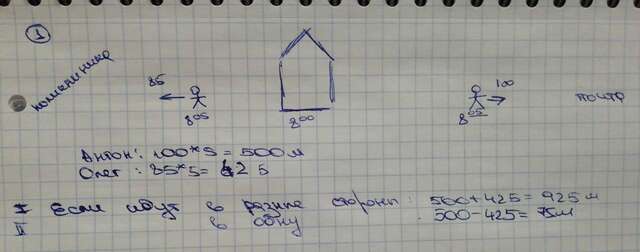 1
поликлиника
85
100
почта
8 05
8 00
8 05
Антон: 100*5 = 500 м
Олег: 85*5 = 425
I Если идут в разные стороны: 500+425 = 925 м
II в одну 500-425 = 75м